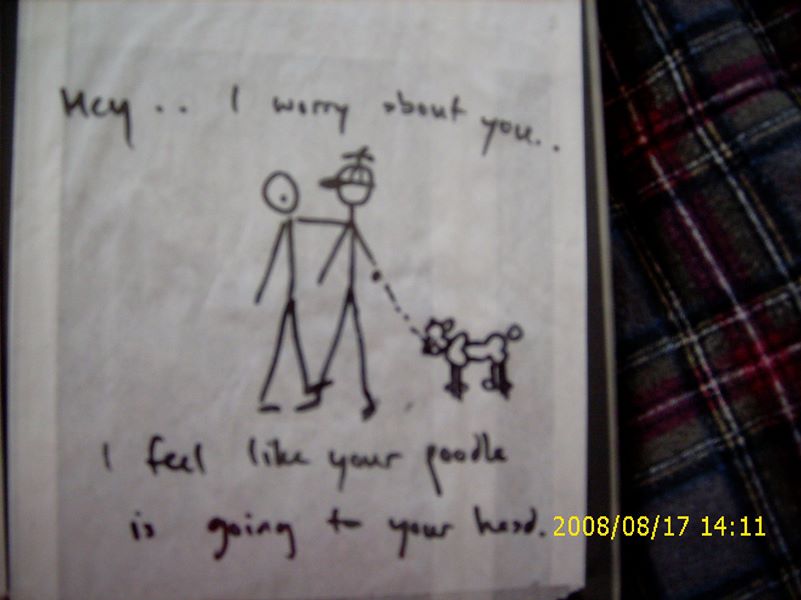 Hey.. I worry about you..
I feel like your poodle
is going to your head.
2008/08/17 14:11